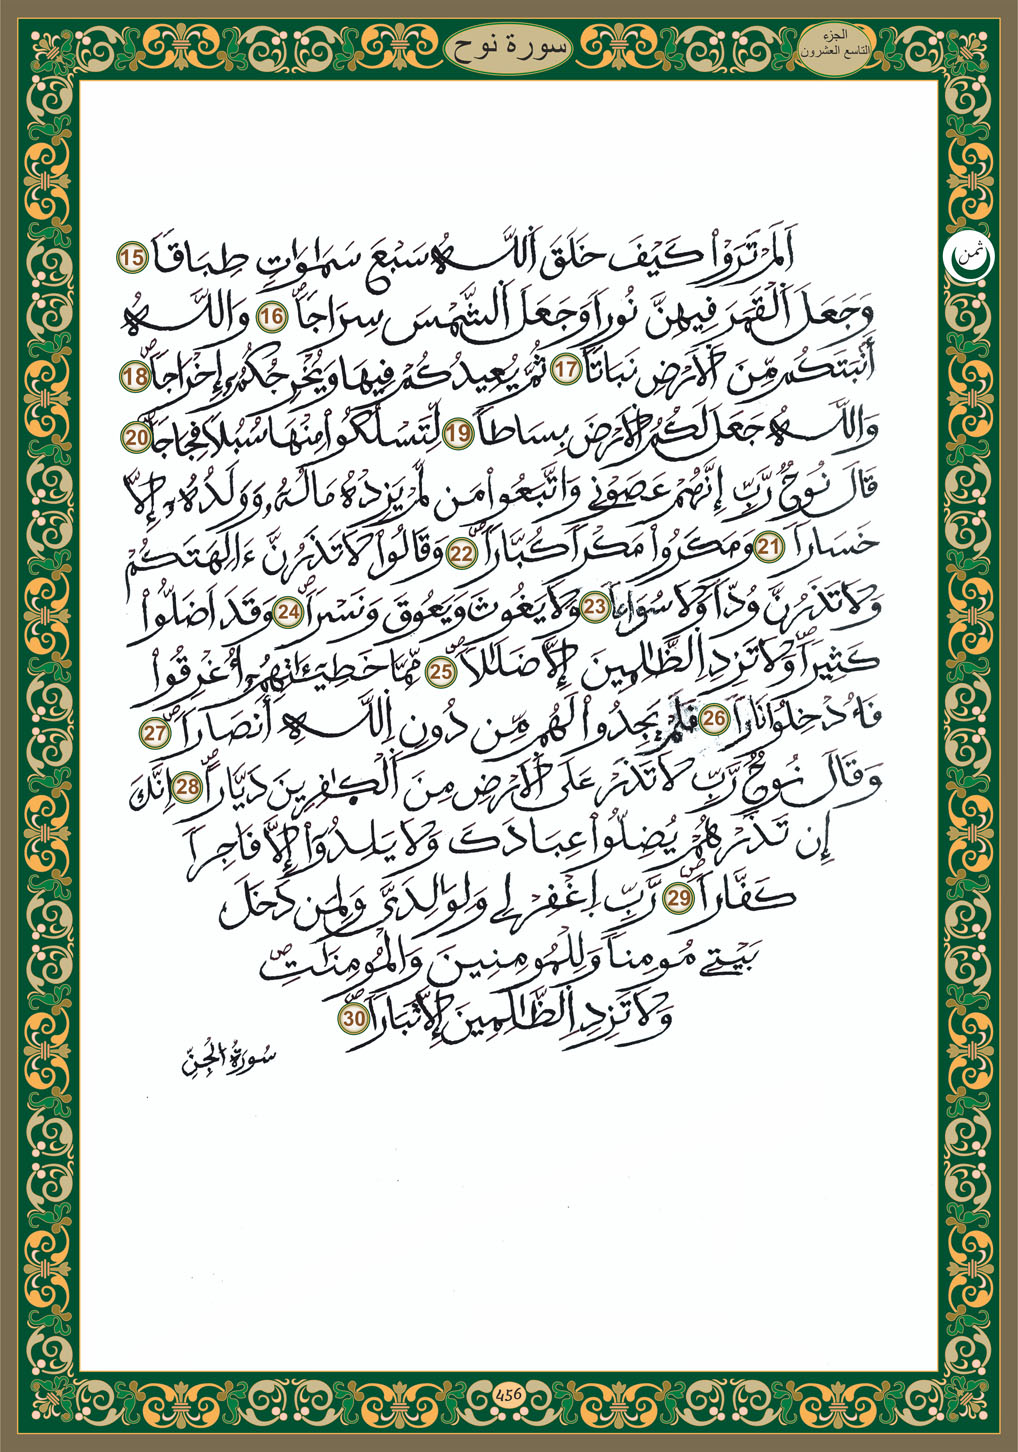 الجزء
التاسع العشرون
سورة نوح
ثمن
اَلَمْ تَرَوْاْ كَيْفَ خَلَقَ اَللَّهُ سَبْعَ سَمَٰوَٰتٖ طِبَاقاٗ 15
وَجَعَلَ اَلْقَمَرَ فِيهِنَّ نُوراٗ وَجَعَلَ اَلشَّمْسَ سِرَاجاٗ 16 وَاللَّهُ
أَنۢبَتَكُم مِّنَ اَلَارْضِ نَبَاتاٗ 17 ثُمَّ يُعِيدُكُمْ فِيهَا وَيُخْرِجُكُمُۥٓ إِخْرَاجاٗ 18
وَاللَّهُ جَعَلَ لَكُمُ اُلَارْضَ بِسَاطاٗ 19 لِّتَسْلُكُواْ مِنْهَا سُبُلاٗ فِجَاجاٗ 20
قَالَ نُوحٌ رَّبِّ إِنَّهُمْ عَصَوْنِے وَاتَّبَعُواْ مَن لَّمْ يَزِدْهُ مَالُهُۥ وَوَلَدُهُۥٓ إِلَّا
خَسَاراٗ 21 وَمَكَرُواْ مَكْراٗ كُبَّاراٗ 22 وَقَالُواْ لَا تَذَرُنَّ ءَالِهَتَكُمْ
وَلَا تَذَرُنَّ وُدّاٗ وَلَا سُوَاعاٗ 23 وَلَا يَغُوثَ وَيَعُوقَ وَنَسْراٗ 24 وَقَدَ اَضَلُّواْ
كَثِيراٗ وَلَا تَزِدِ اِلظَّٰلِمِينَ إِلَّا ضَلَٰلاٗ 25 مِّمَّا خَطِيٓـَٰٔتِهِمُۥٓ أُغْرِقُواْ
فَأُدْخِلُواْ نَاراٗ 26 فَلَمْ يَجِدُواْ لَهُم مِّن دُونِ اِللَّهِ أَنصَاراٗ 27
وَقَالَ نُوحٌ رَّبِّ لَا تَذَرْ عَلَى اَلَارْضِ مِنَ اَلْكٰفِرِينَ دَيَّاراً 28 اِنَّكَ
إِن تَذَرْهُمْ يُضِلُّواْ عِبَادَكَ وَلَا يَلِدُوٓاْ إِلَّا فَاجِراٗ
كَفَّاراٗ 29 رَّبِّ اِغْفِرْ لِے وَلِوَٰلِدَيَّ وَلِمَن دَخَلَ
بَيْتِے مُومِناٗ وَلِلْمُومِنِينَ وَالْمُومِنَٰتِ
وَلَا تَزِدِ اِلظَّٰلِمِينَ إِلَّا تَبَاراٗ 30
سُورَةُ الْجِنِّ
456